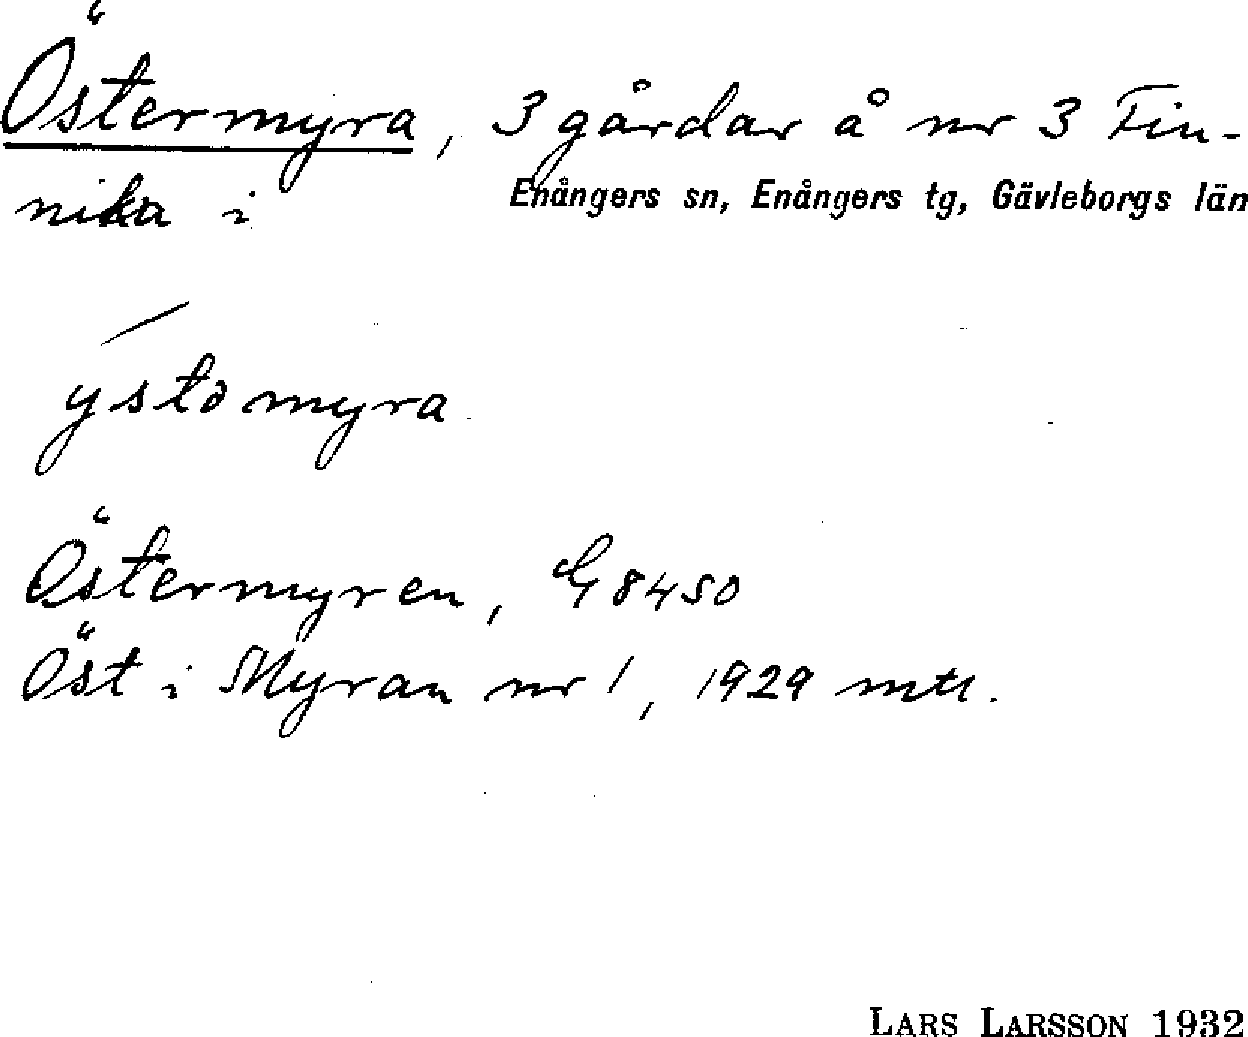 Östermyra, 3 gårdar å nr 3 Fin-
nika i Enångers sn, Enångers tg, Gävleborgs län
ýstəmyra
Östermyren, G 8450
Öst i Myran nr 1, 1929 mtl.
LARS LARSSON 1932